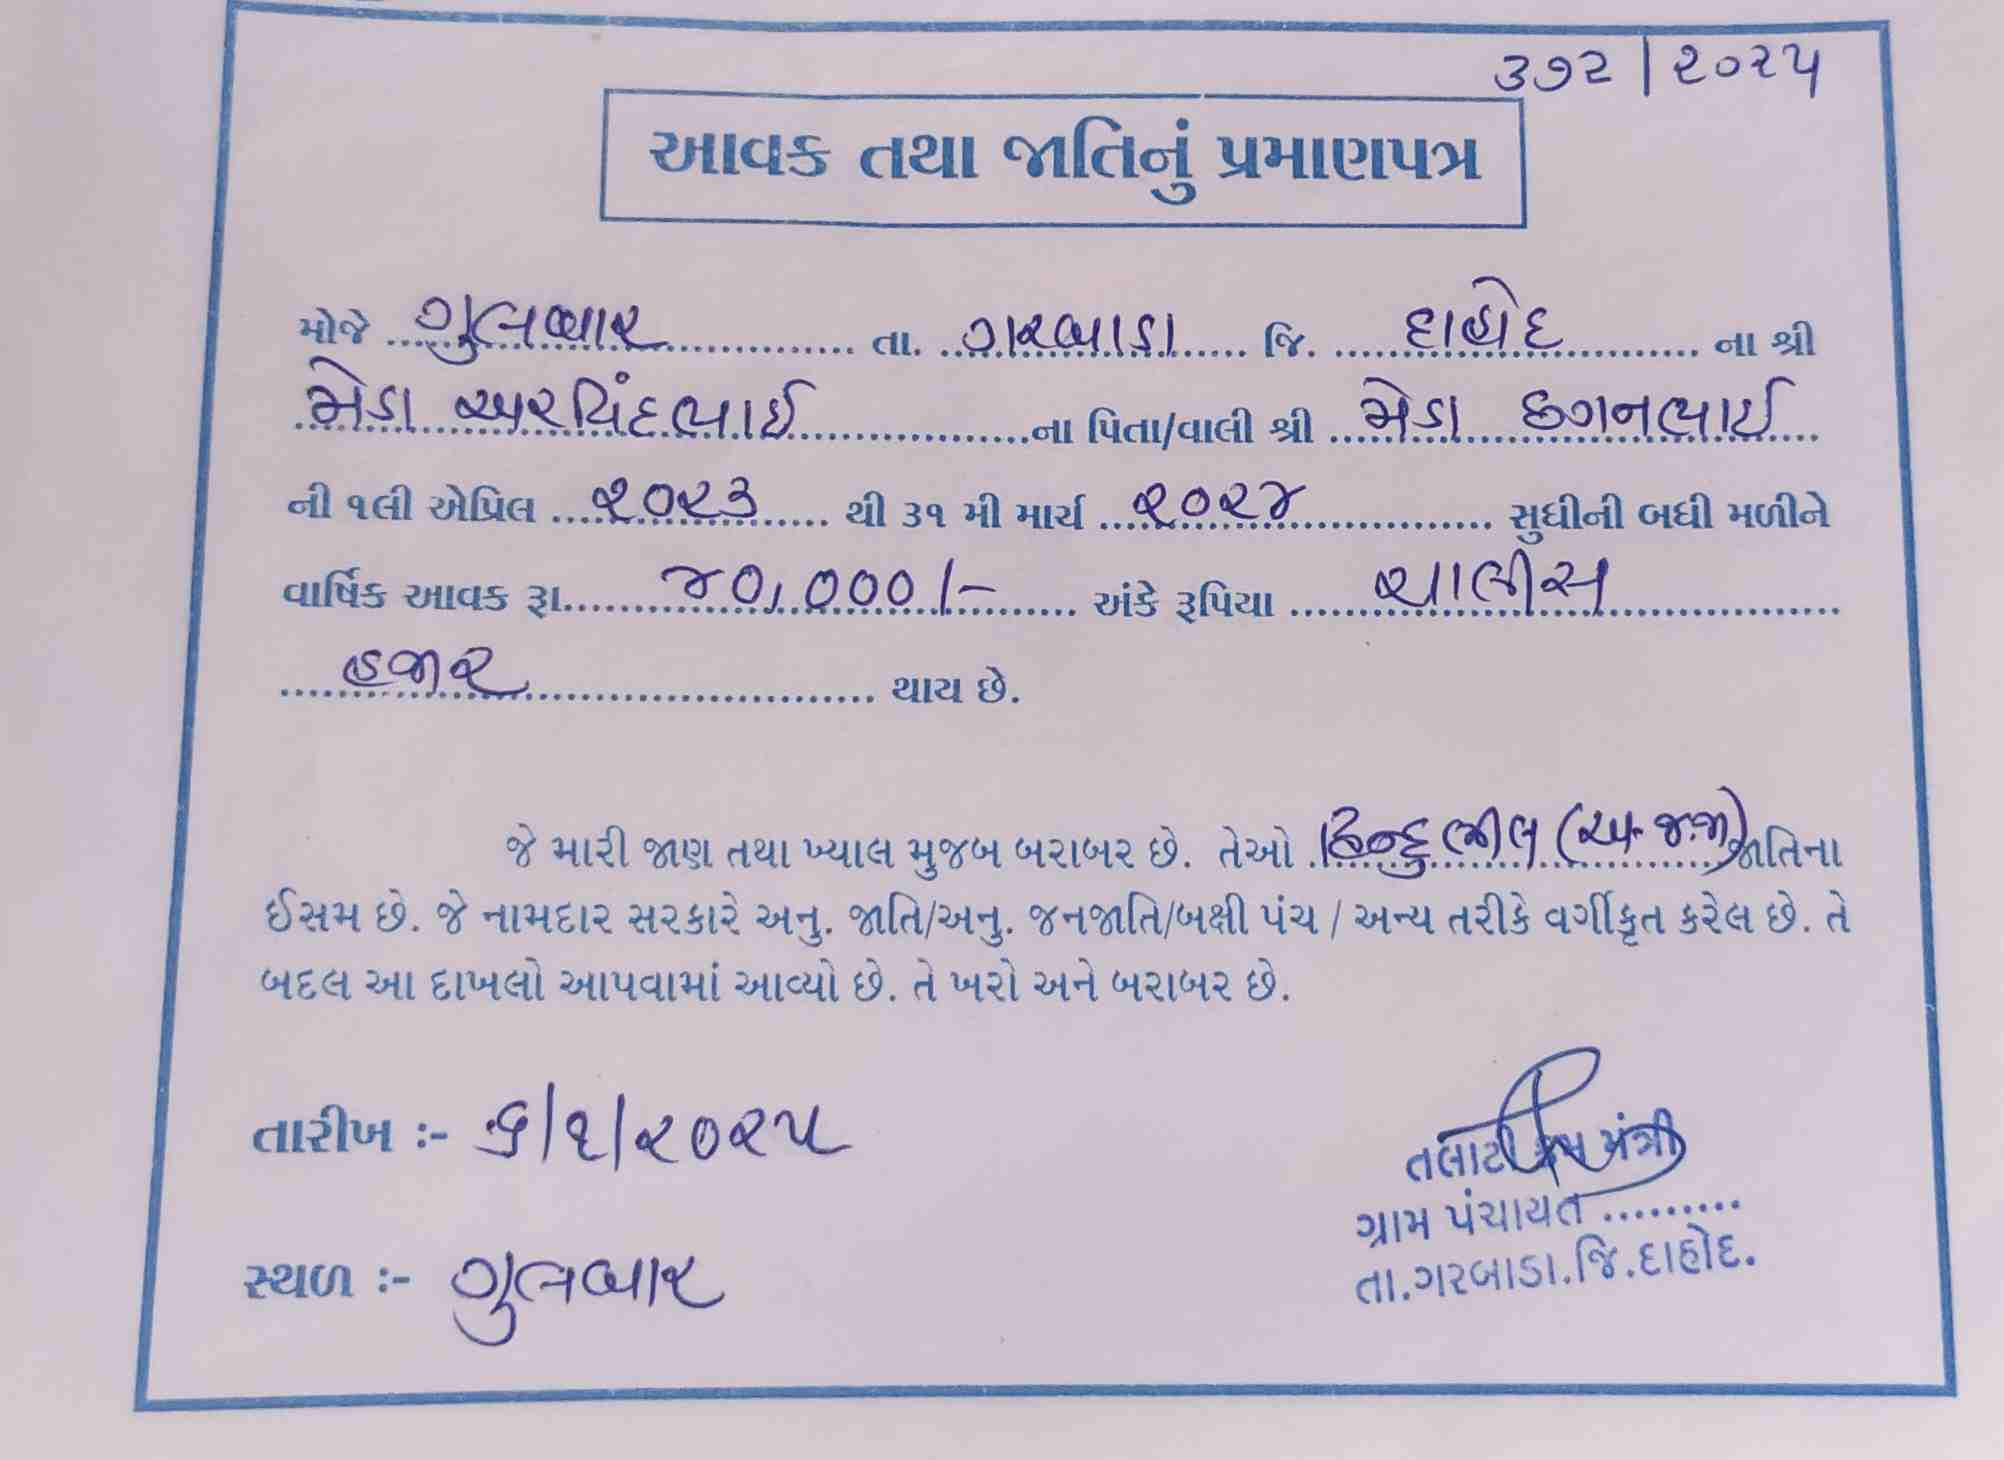 ૩૭૨ | ૨૦૨૫
આવક તથા જાતિનું પ્રમાણપત્ર
મોજે ગુલબાર તા. ગરબાડા જિ. દાહોદ ના શ્રી
મેડા અરવિંદભાઈ ના પિતા/વાલી શ્રી મેડા છગનભાઈ
ની ૧લી એપ્રિલ ૨૦૨૩ થી ૩૧ મી માર્ચ ૨૦૨૪ સુધીની બધી મળીને
વાર્ષિક આવક રૂા. ૪૦,૦૦૦/- અંકે રૂપિયા ચાલીસ
હજાર થાય છે.
જે મારી જાણ તથા ખ્યાલ મુજબ બરાબર છે. તેઓ હિન્દુ ભીલ (અ.જ.જા) જાતિના
ઈસમ છે. જે નામદાર સરકારે અનુ. જાતિ/અનુ. જનજાતિ/બક્ષી પંચ / અન્ય તરીકે વર્ગીકૃત કરેલ છે. તે
બદલ આ દાખલો આપવામાં આવ્યો છે. તે ખરો અને બરાબર છે.
તારીખ :- ૬/૧/૨૦૨૫
તલાટી કમ મંત્રી
ગ્રામ પંચાયત .........
તા.ગરબાડા.જિ.દાહોદ.
સ્થળ :- ગુલબાર